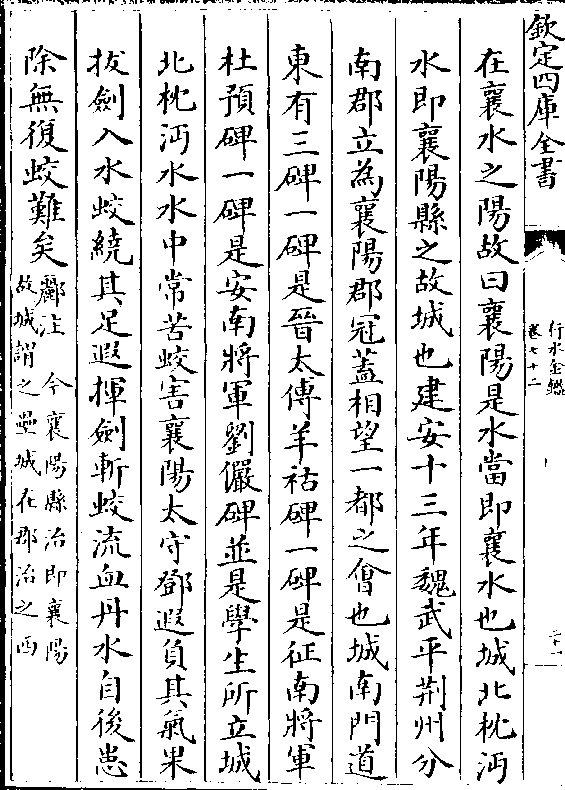 欽定四庫全書
行水金鑑
卷七十二
二十一
在襄水之陽故曰襄陽是水當即襄水也城北枕沔
水即襄陽縣之故城也建安十三年魏武平荆州分
南郡立為襄陽郡冠蓋相望一都之㑹也城南門道
東有三碑一碑是晉太傅羊祜碑一碑是征南將軍
杜預碑一碑是安南將軍劉儼碑並是學生所立城
北枕沔水水中常苦蛟害襄陽太守鄧遐負其氣果
拔劍入水蛟繞其足遐揮劍斬蛟流血丹水自後患
除無復蛟難矣
酈注　今襄陽縣治即襄陽
故城謂之壘城在郡治之西